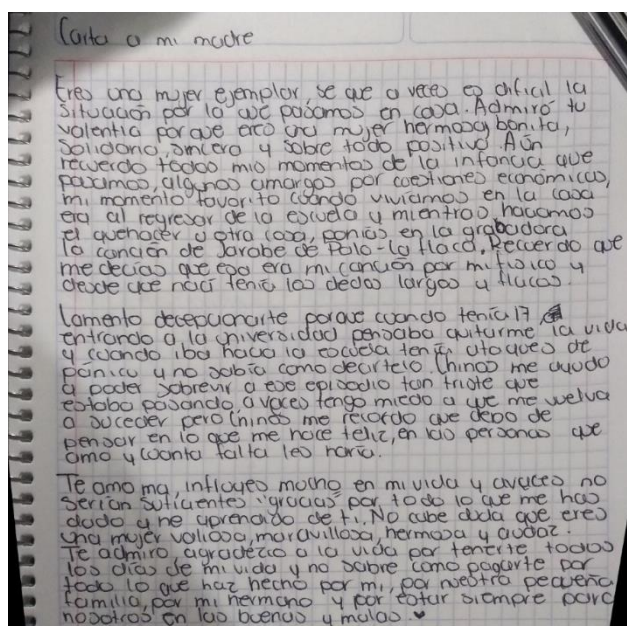 Carta a mi madre
Eres una mujer ejemplar, se que a veces es dificil la
situación por la que pasamos en casa. Admiró tu
valentia porque eres una mujer hermosa, bonita,
solidaria, sincera y sobre todo positiva. Aún
recuerdo todos mis momentos de la infancia que
pasamos, algunos amargos por cuestiones económicas,
mi momento favorito cuando viviamos en la casa
era al regresar de la escuela y mientras haciamos
el quehacer u otra cosa, ponias en la grabadora
la canción de Jarabe de Palo - la flaca. Recuerdo que
me decías que esa era mi canción por mi fisico y
desde que naci tenia los dedos largos y flacos.
Lamento decepcionarte porque cuando tenía 17
entrando a la universidad pensaba quitarme la vida
y cuando iba hacia la escuela tenía ataques de
pánico y no sabia como decirtelo. Chinos me ayudo
a poder sobrevir a ese episodio tan triste que
estaba pasando, a veces tengo miedo a que me vuelva
a suceder pero Chinos me recordo que debo de
pensar en lo que me hace feliz, en las personas que
amo y cuanta falta les haria.
Te amo ma, influyes mucho en mi vida y aveces no
serian suficientes "gracias" por todo lo que me has
dado y he aprendido de ti. No cabe duda que eres
una mujer valiosa, maravillosa, hermosa y audaz.
Te admiro, agradezco a la vida por tenerte todos
los días de mi vida y no sabre como pagarte por
todo lo que haz hecho por mi, por nuestra pequeña
familia, por mi hermano y por estar siempre para
nosotros en las buenas y malas. ♥